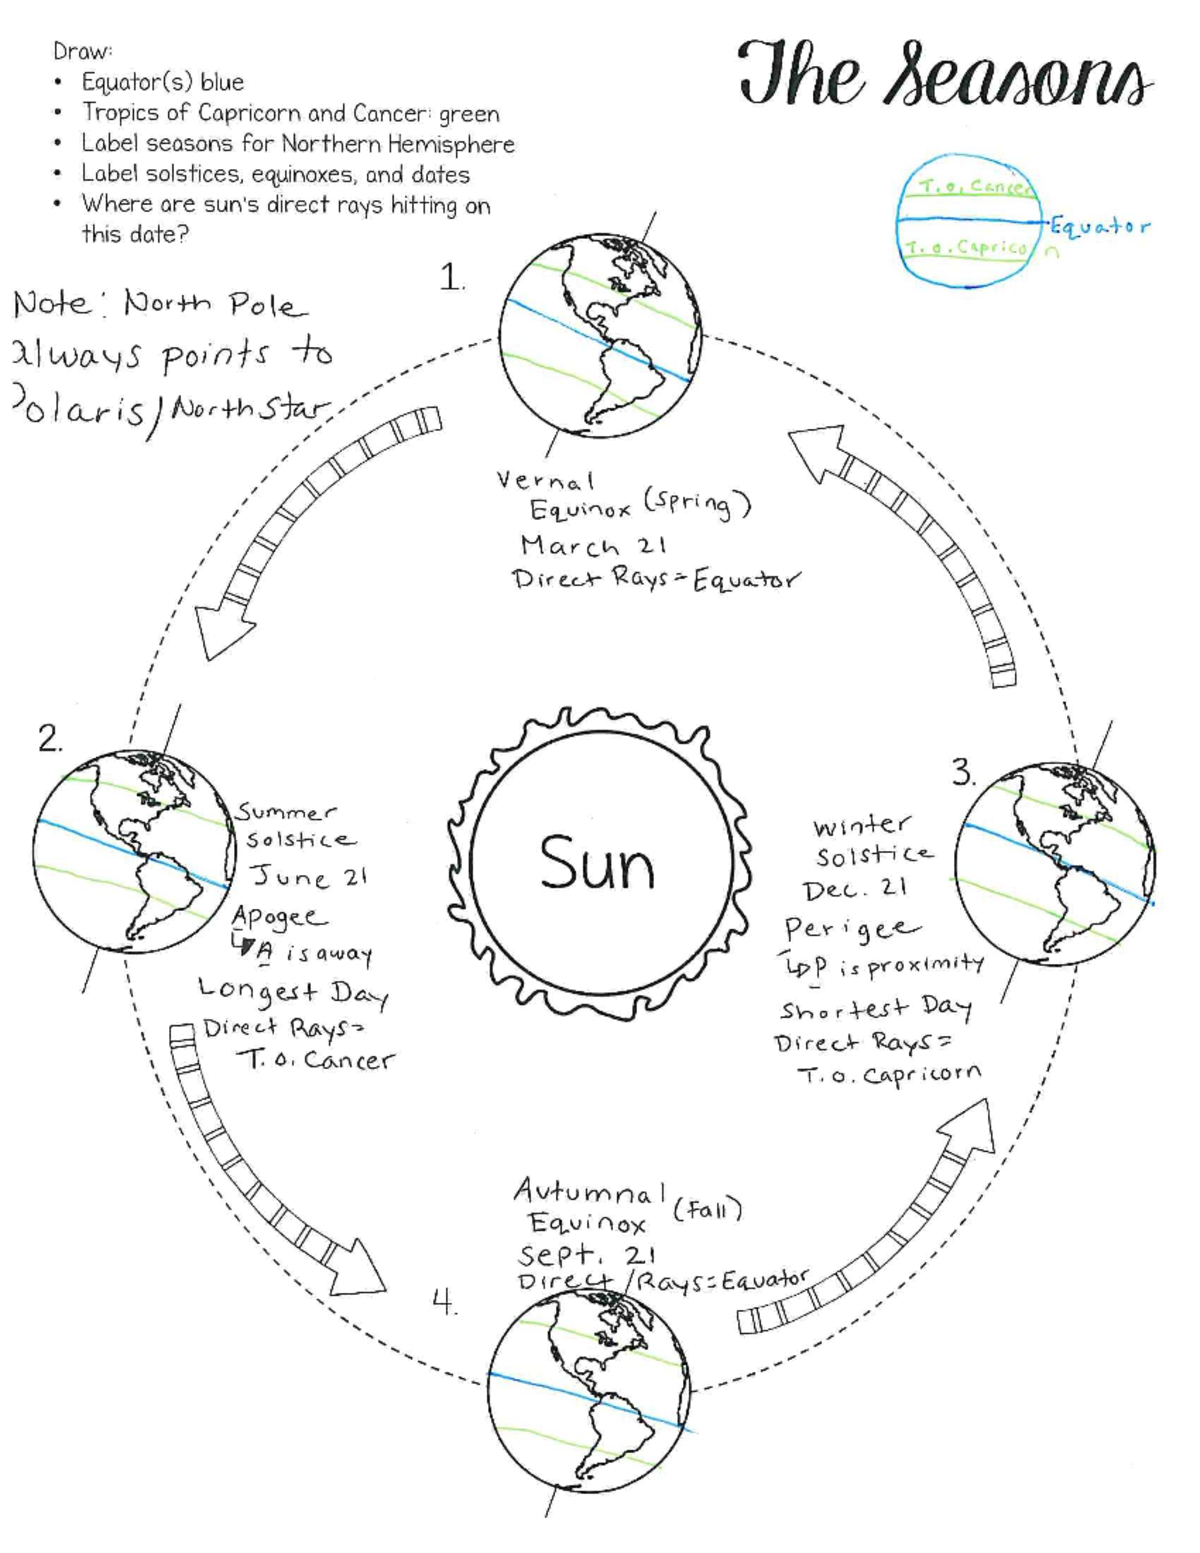 Draw:
• Equator(s) blue
• Tropics of Capricorn and Cancer: green
• Label seasons for Northern Hemisphere
• Label solstices, equinoxes, and dates
• Where are sun's direct rays hitting on
this date?
The Seasons
T.o. Cancer
Equator
T.o. Capricorn
Note: North Pole
always points to
Polaris/North Star
1.
Vernal
Equinox (Spring)
March 21
Direct Rays = Equator
2.
Summer
Solstice
June 21
Apogee
A is away
Longest Day
Direct Rays=
T.o. Cancer
Sun
3.
Winter
Solstice
Dec. 21
Perigee
P is proximity
Shortest Day
Direct Rays=
T.o. Capricorn
Autumnal (Fall)
Equinox
Sept. 21
Direct Rays=Equator
4.